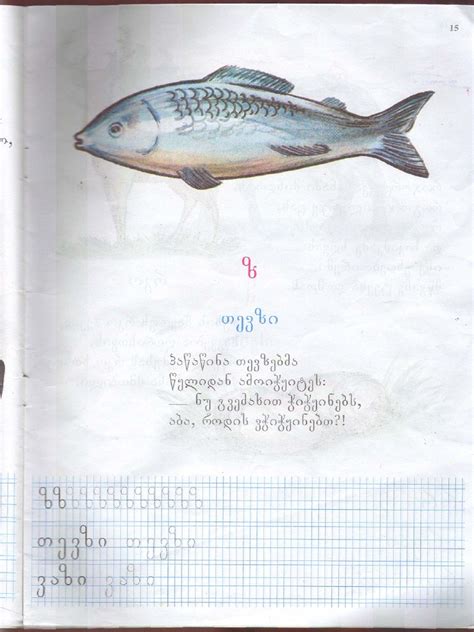 15
ზ
თევზი
პაწაწინა თევზებმა
წყლიდან ამოიჭყიტეს:
— ნუ გვეძახით ჭიჭყინებს,
აბა, როდის ვჭიჭყინებთ?!
ზზზზზზზზზზზზ
თევზი თევზი
ვაზი ვაზი